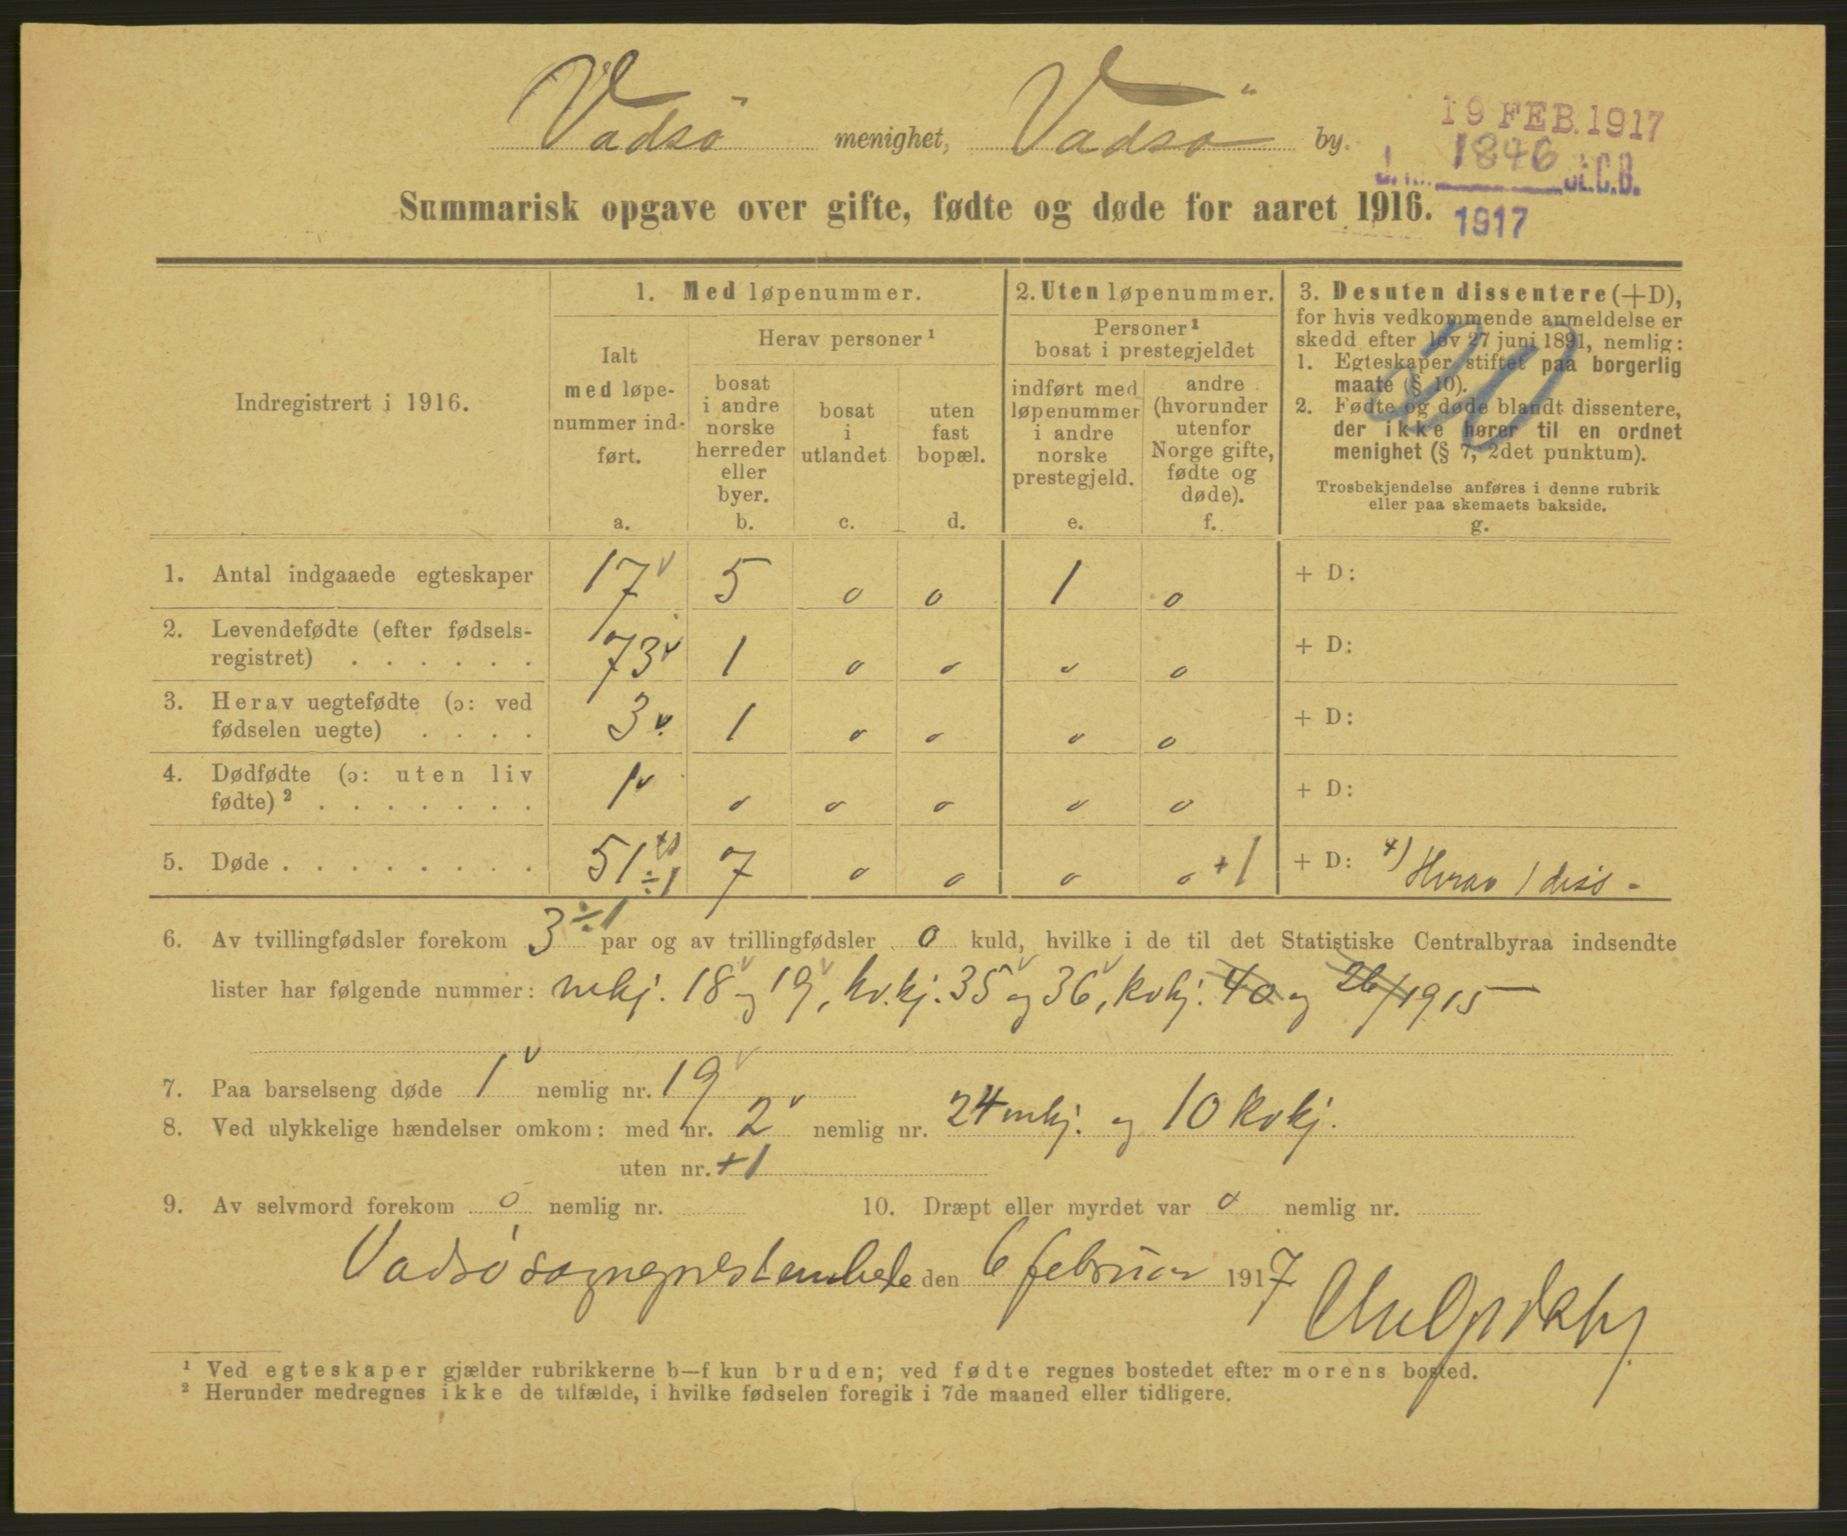 Vadsø menighet, Vadsø by.
19 FEB. 1917
1846 St.C.B.
1917
Summarisk opgave over gifte, fødte og døde for aaret 1916.
Indregistrert i 1916.
1. Med løpenummer.
Ialt
med løpe-
nummer ind-
ført.
a.
Herav personer ¹
bosat
i andre
norske
herreder
eller
byer.
b.
bosat
i
utlandet
c.
uten
fast
bopæl.
d.
2. Uten løpenummer.
Personer ¹
bosat i prestegjeldet
indført med
løpenummer
i andre
norske
prestegjeld.
e.
andre
(hvorunder
utenfor
Norge gifte,
fødte og
døde).
f.
3. Desuten dissentere (+D),
for hvis vedkommende anmeldelse er
skedd efter lov 27 juni 1891, nemlig:
1. Egteskaper stiftet paa borgerlig
maate (§ 10).
2. Fødte og døde blandt dissentere,
der ikke hører til en ordnet
menighet (§ 7, 2det punktum).
Trosbekjendelse anføres i denne rubrik
eller paa skemaets bakside.
g.
1. Antal indgaaede egteskaper 17 v 5 0 0 1 0 + D:
2. Levendefødte (efter fødsels-
registret) . . . . . . 73 v 1 0 0 0 0 + D:
3. Herav uegtefødte (ɔ: ved
fødselen uegte) . . . . 3 v. 1 0 0 0 0 + D:
4. Dødfødte (ɔ: uten liv
fødte) ² . . . . . . . 1 v 0 0 0 0 0 + D:
5. Døde . . . . . . . . 51 +1 ÷1 7 0 0 0 0 +1 + D: +) Herav 1 diss -
6. Av tvillingfødsler forekom 3 ÷1 par og av trillingfødsler 0 kuld, hvilke i de til det Statistiske Centralbyraa indsendte
lister har følgende nummer: mkj. 18 v og 19 v, kv.kj. 35 v og 36 v, kvkj. 40 og 26/1915 —
7. Paa barselseng døde 1 v nemlig nr. 19 v
8. Ved ulykkelige hændelser omkom: med nr. 2 v nemlig nr. 24 mkj. og 10 kvkj.
uten nr. +1
9. Av selvmord forekom 0 nemlig nr. 10. Dræpt eller myrdet var 0 nemlig nr.
Vadsø sogneprestembede den 6 februar 1917
¹ Ved egteskaper gjælder rubrikkerne b—f kun bruden; ved fødte regnes bostedet efter morens bosted.
² Herunder medregnes ikke de tilfælde, i hvilke fødselen foregik i 7de maaned eller tidligere.